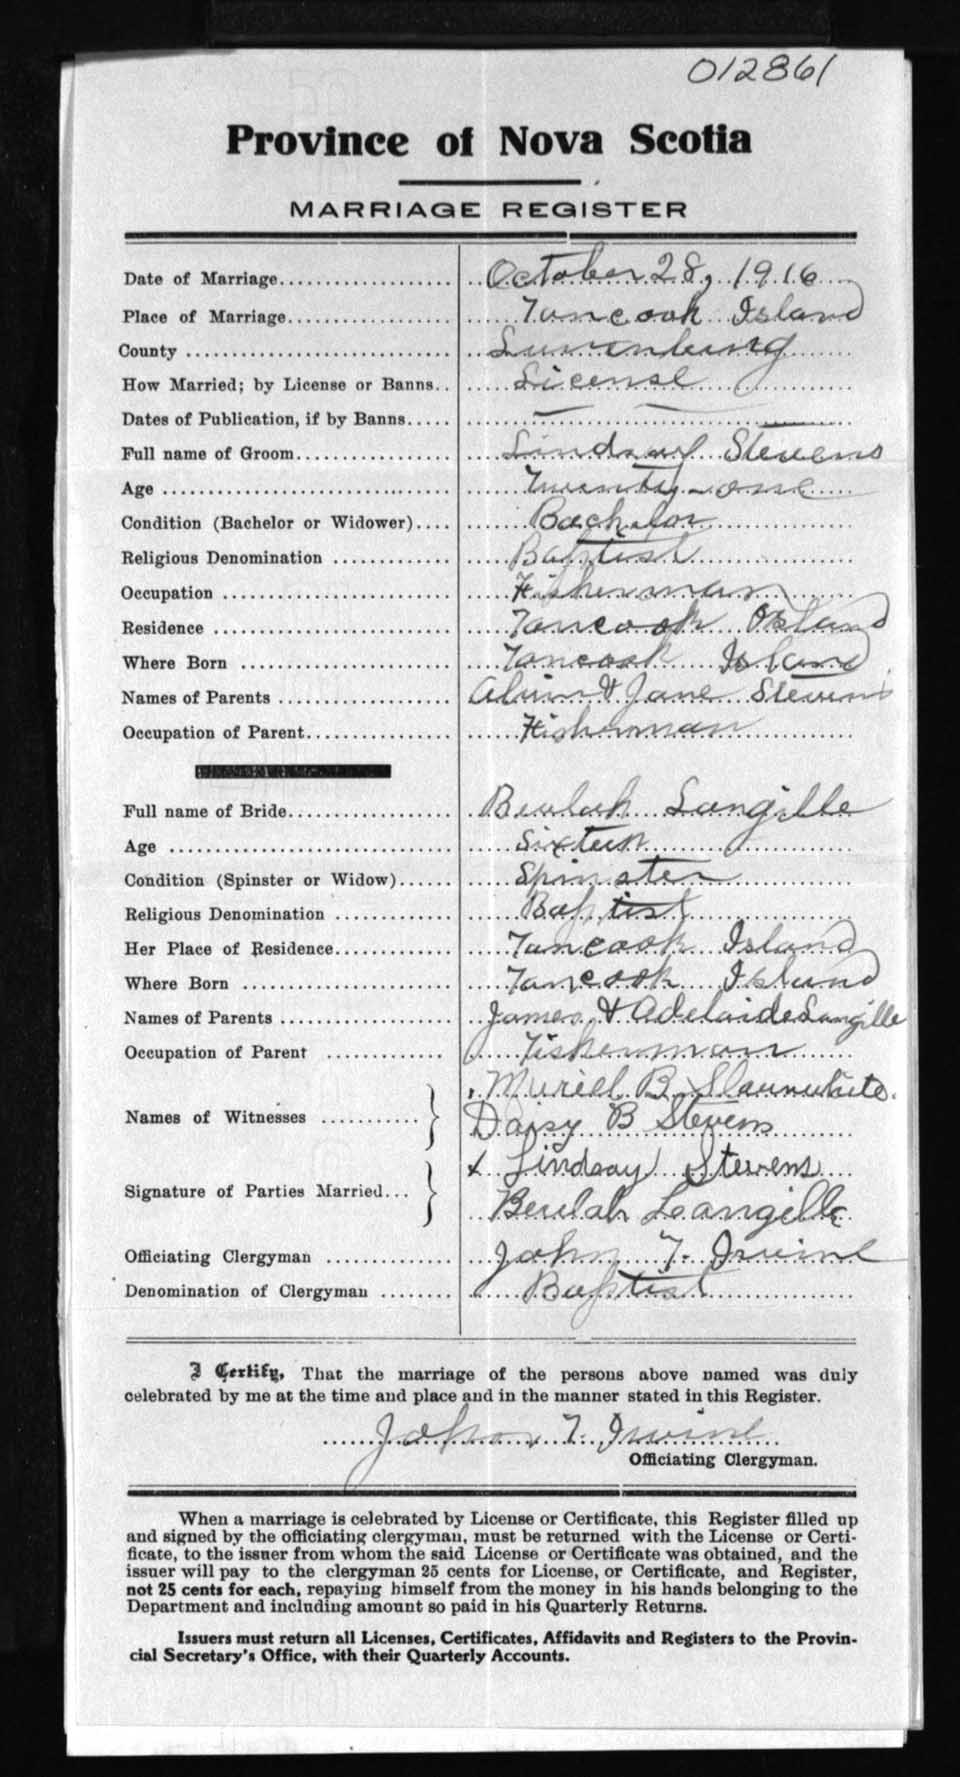 012861
Province of Nova Scotia
MARRIAGE REGISTER
Date of Marriage.................... October 28, 1916
Place of Marriage.................... Tancook Island
County .................... Lunenburg
How Married; by License or Banns.. License
Dates of Publication, if by Banns..... — —
Full name of Groom.................... Lindsay Stevens
Age .................... Twenty-one
Condition (Bachelor or Widower).... Bachelor
Religious Denomination ............. Baptist
Occupation .................... Fisherman
Residence .................... Tancook Island
Where Born .................... Tancook Island
Names of Parents .................... Alvin & Jane Stevens
Occupation of Parent................ Fisherman
Full name of Bride.................... Beulah Langille
Age .................... Sixteen
Condition (Spinster or Widow)...... Spinster
Religious Denomination ............ Baptist
Her Place of Residence............. Tancook Island
Where Born .................... Tancook Island
Names of Parents .................... James & Adelaide Langille
Occupation of Parent ............. Fisherman
Muriel B. Slaunwhite.
Names of Witnesses ...........
Daisy B Stevens
x Lindsay Stevens
Signature of Parties Married...
Beulah Langille
Officiating Clergyman .............. John T. Irvine
Denomination of Clergyman ........ Baptist
I Certify, That the marriage of the persons above named was duly
celebrated by me at the time and place and in the manner stated in this Register.
John T. Irvine
Officiating Clergyman.
When a marriage is celebrated by License or Certificate, this Register filled up
and signed by the officiating clergyman, must be returned with the License or Certi-
ficate, to the issuer from whom the said License or Certificate was obtained, and the
issuer will pay to the clergyman 25 cents for License, or Certificate, and Register,
not 25 cents for each, repaying himself from the money in his hands belonging to the
Department and including amount so paid in his Quarterly Returns.
Issuers must return all Licenses, Certificates, Affidavits and Registers to the Provin-
cial Secretary's Office, with their Quarterly Accounts.